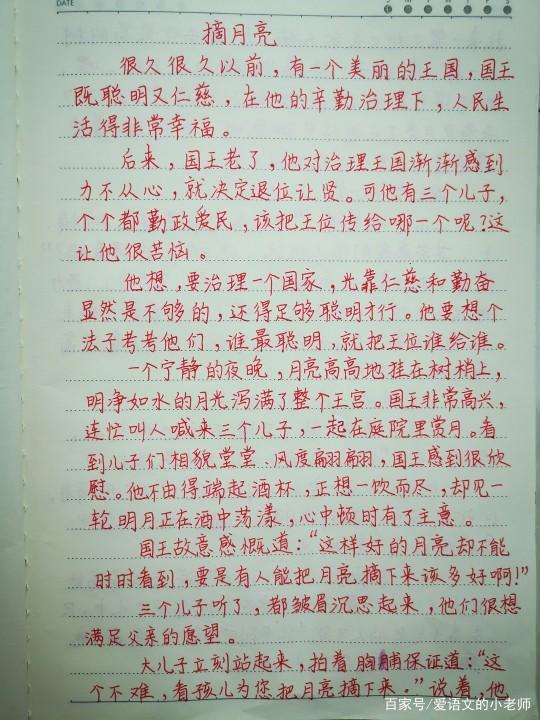 DATE
摘月亮
很久很久以前，有一个美丽的王国，国王
既聪明又仁慈，在他的辛勤治理下，人民生
活得非常幸福。
后来，国王老了，他对治理王国渐渐感到
力不从心，就决定退位让贤。可他有三个儿子，
个个都勤政爱民，该把王位传给哪一个呢？这
让他很苦恼。
他想，要治理一个国家，光靠仁慈和勤奋
显然是不够的，还得足够聪明才行。他要想个
法子考考他们，谁最聪明，就把王位谁给谁。
一个宁静的夜晚，月亮高高地挂在树梢上，
明净如水的月光泻满了整个王宫。国王非常高兴，
连忙叫人喊来三个儿子，一起在庭院里赏月。看
到儿子们相貌堂堂、风度翩翩，国王感到很欣
慰。他不由得端起酒杯，正想一饮而尽，却见一
轮明月正在酒中荡漾，心中顿时有了主意。
国王故意感慨道：“这样好的月亮却不能
时时看到，要是有人能把月亮摘下来该多好啊！”
三个儿子听了，都皱眉沉思起来，他们很想
满足父亲的愿望。
大儿子立刻站起来，拍着胸脯保证道：“这
个不难，看孩儿为您把月亮摘下来。”说着，他
百家号/爱语文的小老师